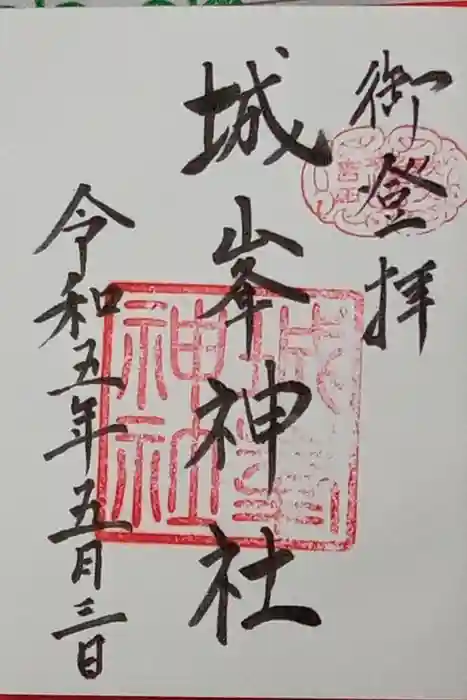 御登拝
城峯神社
令和五年五月三日
城峯
神社